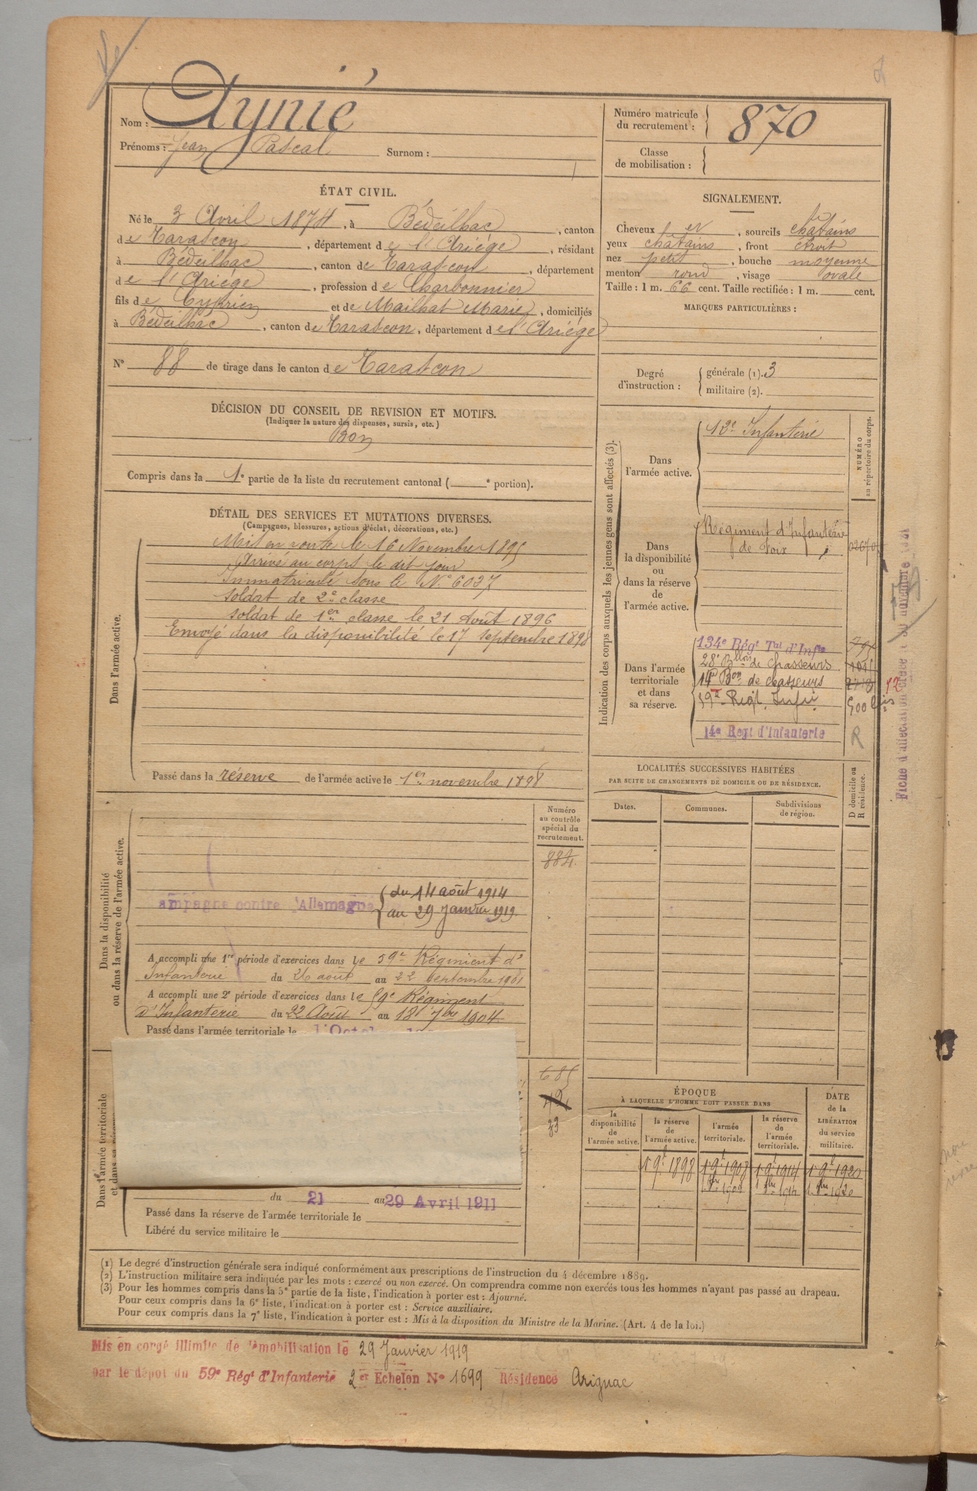 Nom : Aynié
Prénoms : Jean Pascal Surnom :
Numéro matricule du recrutement : 870
Classe de mobilisation :
ÉTAT CIVIL.
Né le 3 Avril 1874, à Bédeilhac, canton
de Tarascon, département de l'Ariège, résidant
à Bédeilhac, canton de Tarascon, département
de l'Ariège, profession de Charbonnier
fils de Cyprien et de Mailhat Marie, domiciliés
à Bédeilhac, canton de Tarascon, département de l'Ariège
N° 88 de tirage dans le canton de Tarascon
SIGNALEMENT.
Cheveux, sourcils châtains
yeux châtains, front étroit
nez petit, bouche moyenne
menton rond, visage ovale
Taille : 1 m. 66 cent. Taille rectifiée : 1 m. cent.
MARQUES PARTICULIÈRES :
Degré d'instruction : générale (1). 3
militaire (2).
DÉCISION DU CONSEIL DE REVISION ET MOTIFS.
(Indiquer la nature des dispenses, sursis, etc.)
Bon
Compris dans la 1e partie de la liste du recrutement cantonal ( e portion).
DÉTAIL DES SERVICES ET MUTATIONS DIVERSES.
(Campagnes, blessures, actions d'éclat, décorations, etc.)
Dans l'armée active.
Mis en route le 16 Novembre 1895
Arrivé au corps le dit jour
Immatriculé sous le N° 6037
Soldat de 2e classe
soldat de 1ère classe le 21 août 1896
Envoyé dans la disponibilité le 17 septembre 1898
Passé dans la réserve de l'armée active le 1er novembre 1898
Indication des corps auxquels les jeunes gens sont affectés (3).
NUMÉRO au répertoire du corps.
Dans l'armée active.
Infanterie
Dans la disponibilité ou dans la réserve de l'armée active.
Régiment d'Infanterie
de Foix
Dans l'armée territoriale et dans sa réserve.
134e Régt Tal d'Infie
28e Bllon de Chasseurs
14e Bon de chasseurs
59e Regt Infie
14e Regt d'Infanterie
12
500 bis
R
LOCALITÉS SUCCESSIVES HABITÉES
PAR SUITE DE CHANGEMENTS DE DOMICILE OU DE RÉSIDENCE.
Dates. Communes. Subdivisions de région. D domicile ou R résidence.
Dans la disponibilité ou dans la réserve de l'armée active.
Numéro au contrôle spécial du recrutement.
884
ampagne contre l'Allemagne { du 14 août 1914
au 29 Janvier 1919
A accompli une 1re période d'exercices dans le 59e Régiment d'
Infanterie du 26 août au 22 Septembre 1901
A accompli une 2e période d'exercices dans le 59e Régiment
d'Infanterie du 22 Août au 18 7bre 1904
Passé dans l'armée territoriale le
Dans l'armée territoriale
du 21 au 29 Avril 1911
Passé dans la réserve de l'armée territoriale le
Libéré du service militaire le
ÉPOQUE
À LAQUELLE L'HOMME DOIT PASSER DANS
la disponibilité de l'armée active. la réserve de l'armée active. l'armée territoriale. la réserve de l'armée territoriale. DATE de la LIBÉRATION du service militaire.
1 9e 1898 1 9e 1908 1 9e 1914 1 9e 1920
(1) Le degré d'instruction générale sera indiqué conformément aux prescriptions de l'instruction du 4 décembre 1889.
(2) L'instruction militaire sera indiquée par les mots : exercé ou non exercé. On comprendra comme non exercés tous les hommes n'ayant pas passé au drapeau.
(3) Pour les hommes compris dans la 5e partie de la liste, l'indication à porter est : Ajourné.
Pour ceux compris dans la 6e liste, l'indication à porter est : Service auxiliaire.
Pour ceux compris dans la 7e liste, l'indication à porter est : Mis à la disposition du Ministre de la Marine. (Art. 4 de la loi.)
Mis en congé illimité de démobilisation le 29 Janvier 1919
par le dépôt du 59e Régt d'Infanterie 2e Echelon N° 1699 Résidence Arignac